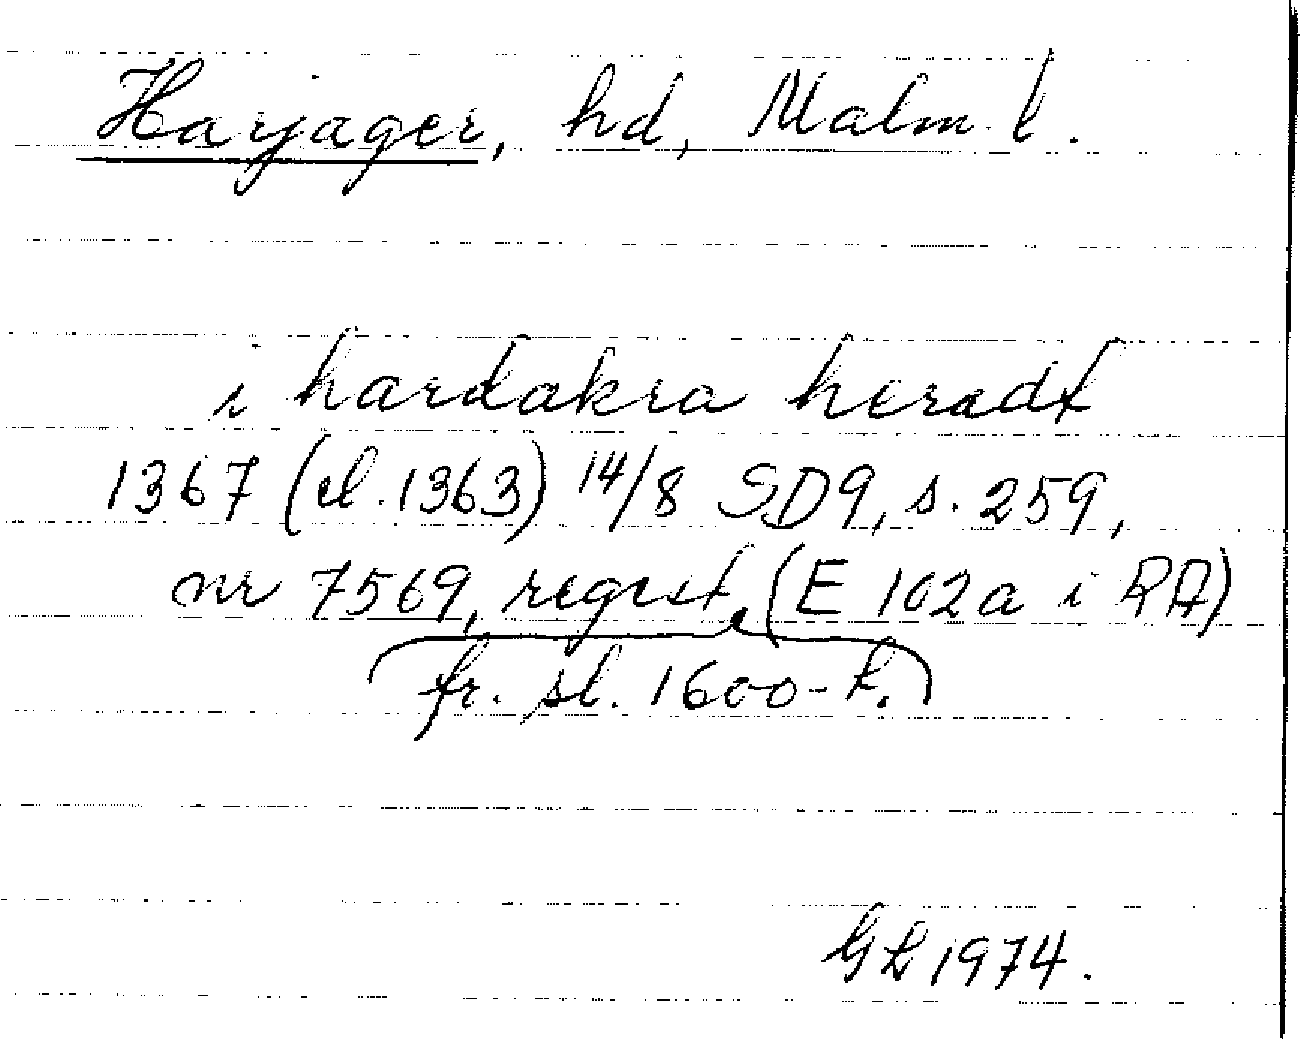 Harjager, hd, Malm. l.
i hardakra heradt
1367 (el. 1363) 14/8 SD9, s. 259,
nr 7569, regest, (E 102a i RA)
fr. sl. 1600-t.
GL 1974.